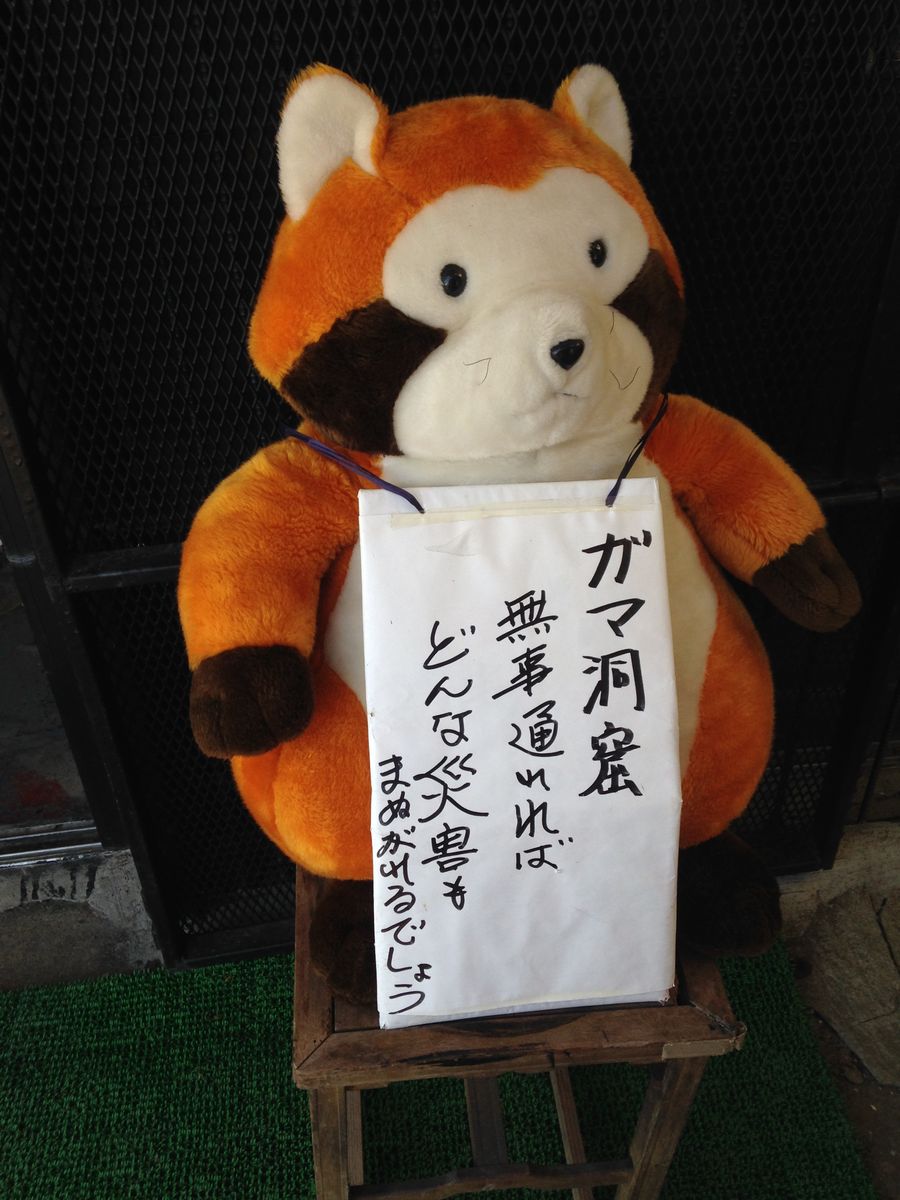 ガマ洞窟
無事通れれば
どんな災害も
まぬがれるでしょう